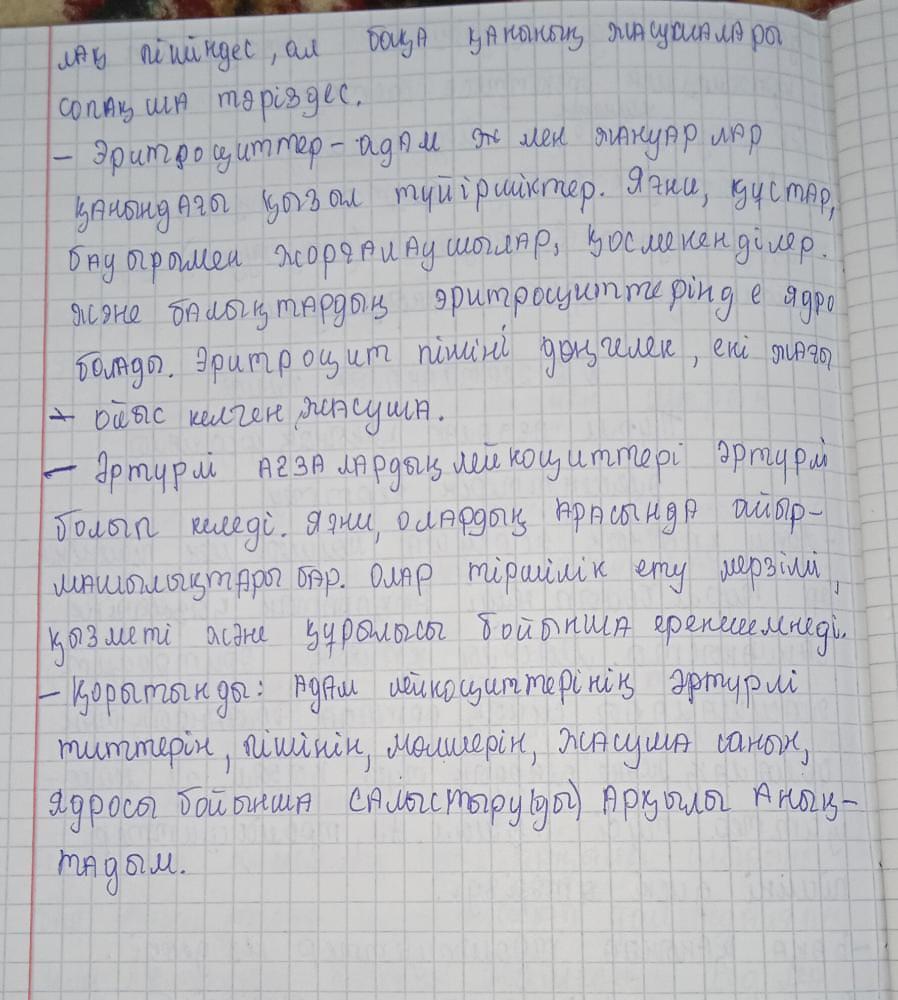 лақ пішіндес, ал бақа қанының жасушалары
сопақша тәріздес.
– Эритроциттер – адам ж мен жануарлар
қанындағы қызыл түйіршіктер. Яғни, құстар,
бауырымен жорғалаушылар, қосмекенділер
және балықтардың эритроциттерінде ядро
болады. Эритроцит пішіні дөңгелек, екі жағы
+ ойыс келген жасуша.
– Әртүрлі ағзалардың лейкоциттері әртүрлі
болып келеді. Яғни, олардың арасында айыр-
машылықтары бар. Олар тіршілік ету мерзімі,
қызметі және құрылысы бойынша ерекшемнеді.
– Қорытынды: Адам лейкоциттерінің әртүрлі
типтерін, пішінін, мөлшерін, жасуша санын,
ядросы бойынша салыстыру(ды) арқылы анық-
тадым.